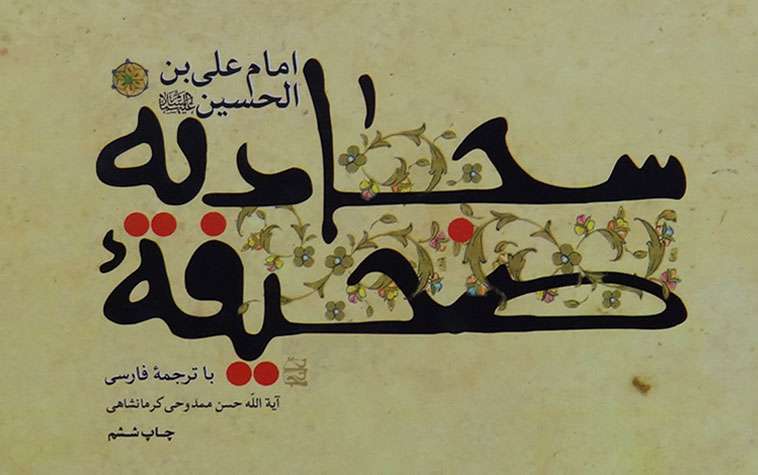 امام علی بن
الحسین علیه‌السلام
سجادیه
صحیفهٔ
با ترجمهٔ فارسی
آیة اللّه حسن ممدوحی کرمانشاهی
چاپ ششم